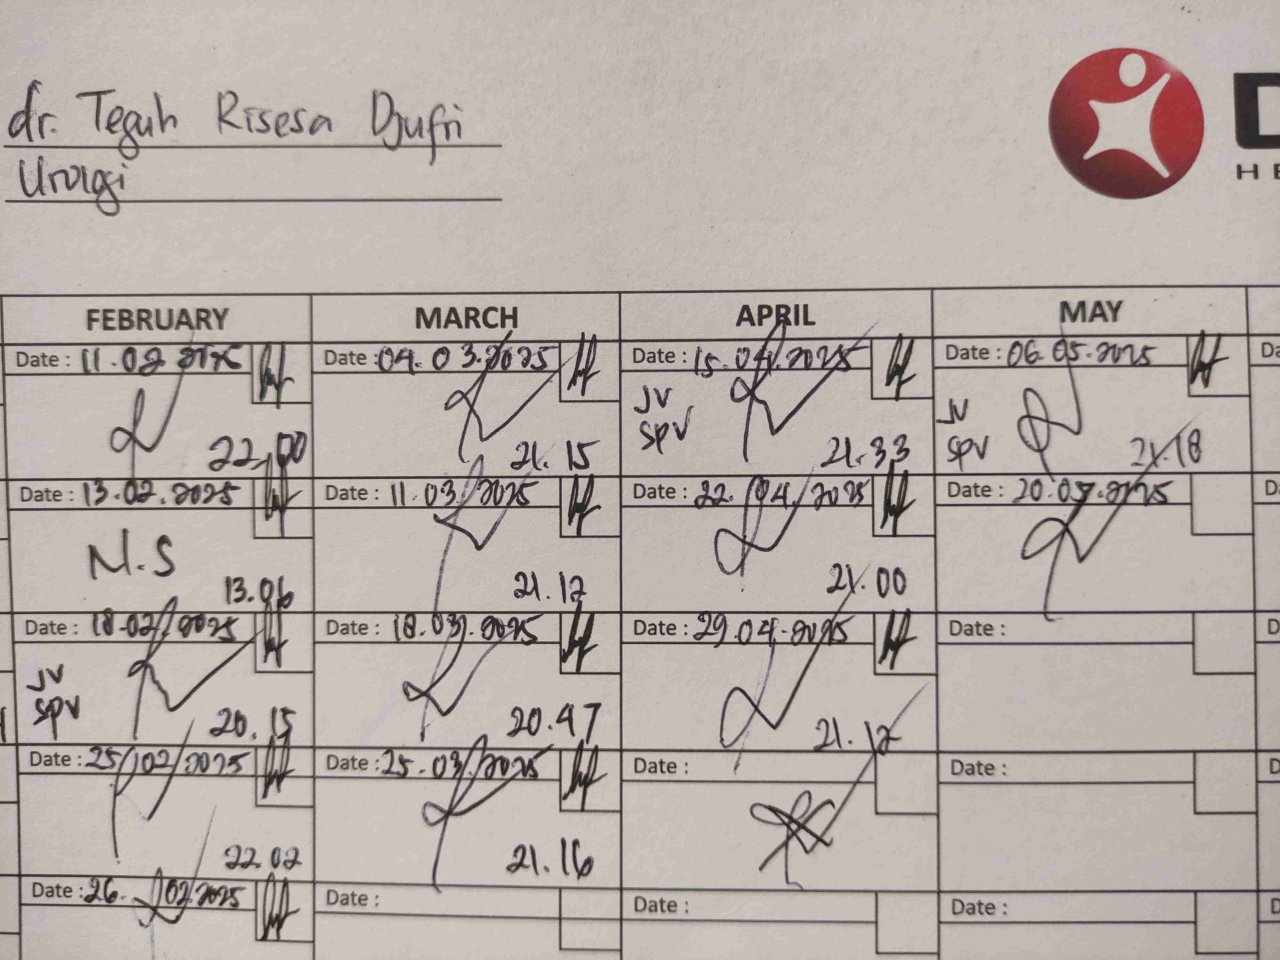 dr. Teguh Risesa Djufri
Urologi
D
HE
FEBRUARY MARCH APRIL MAY
Date : 11.02 Date : 04.03.2025 Date : 15.04.2025 Date : 06.05.2025
JV JV
SPV SPV
22.00 21.15 21.33 21.18
Date : 13.02.2025 Date : 11.03.2025 Date : 22.04.2025 Date : 20.05.2025
N.S
13.06 21.12 21.00
Date : 18.02.2025 Date : 18.03.2025 Date : 29.04.2025 Date :
JV
SPV
20.15 20.47 21.12
Date : 25/02/2025 Date : 25.03.2025 Date : Date :
22.02 21.16
Date : 26.02.2025 Date : Date : Date :